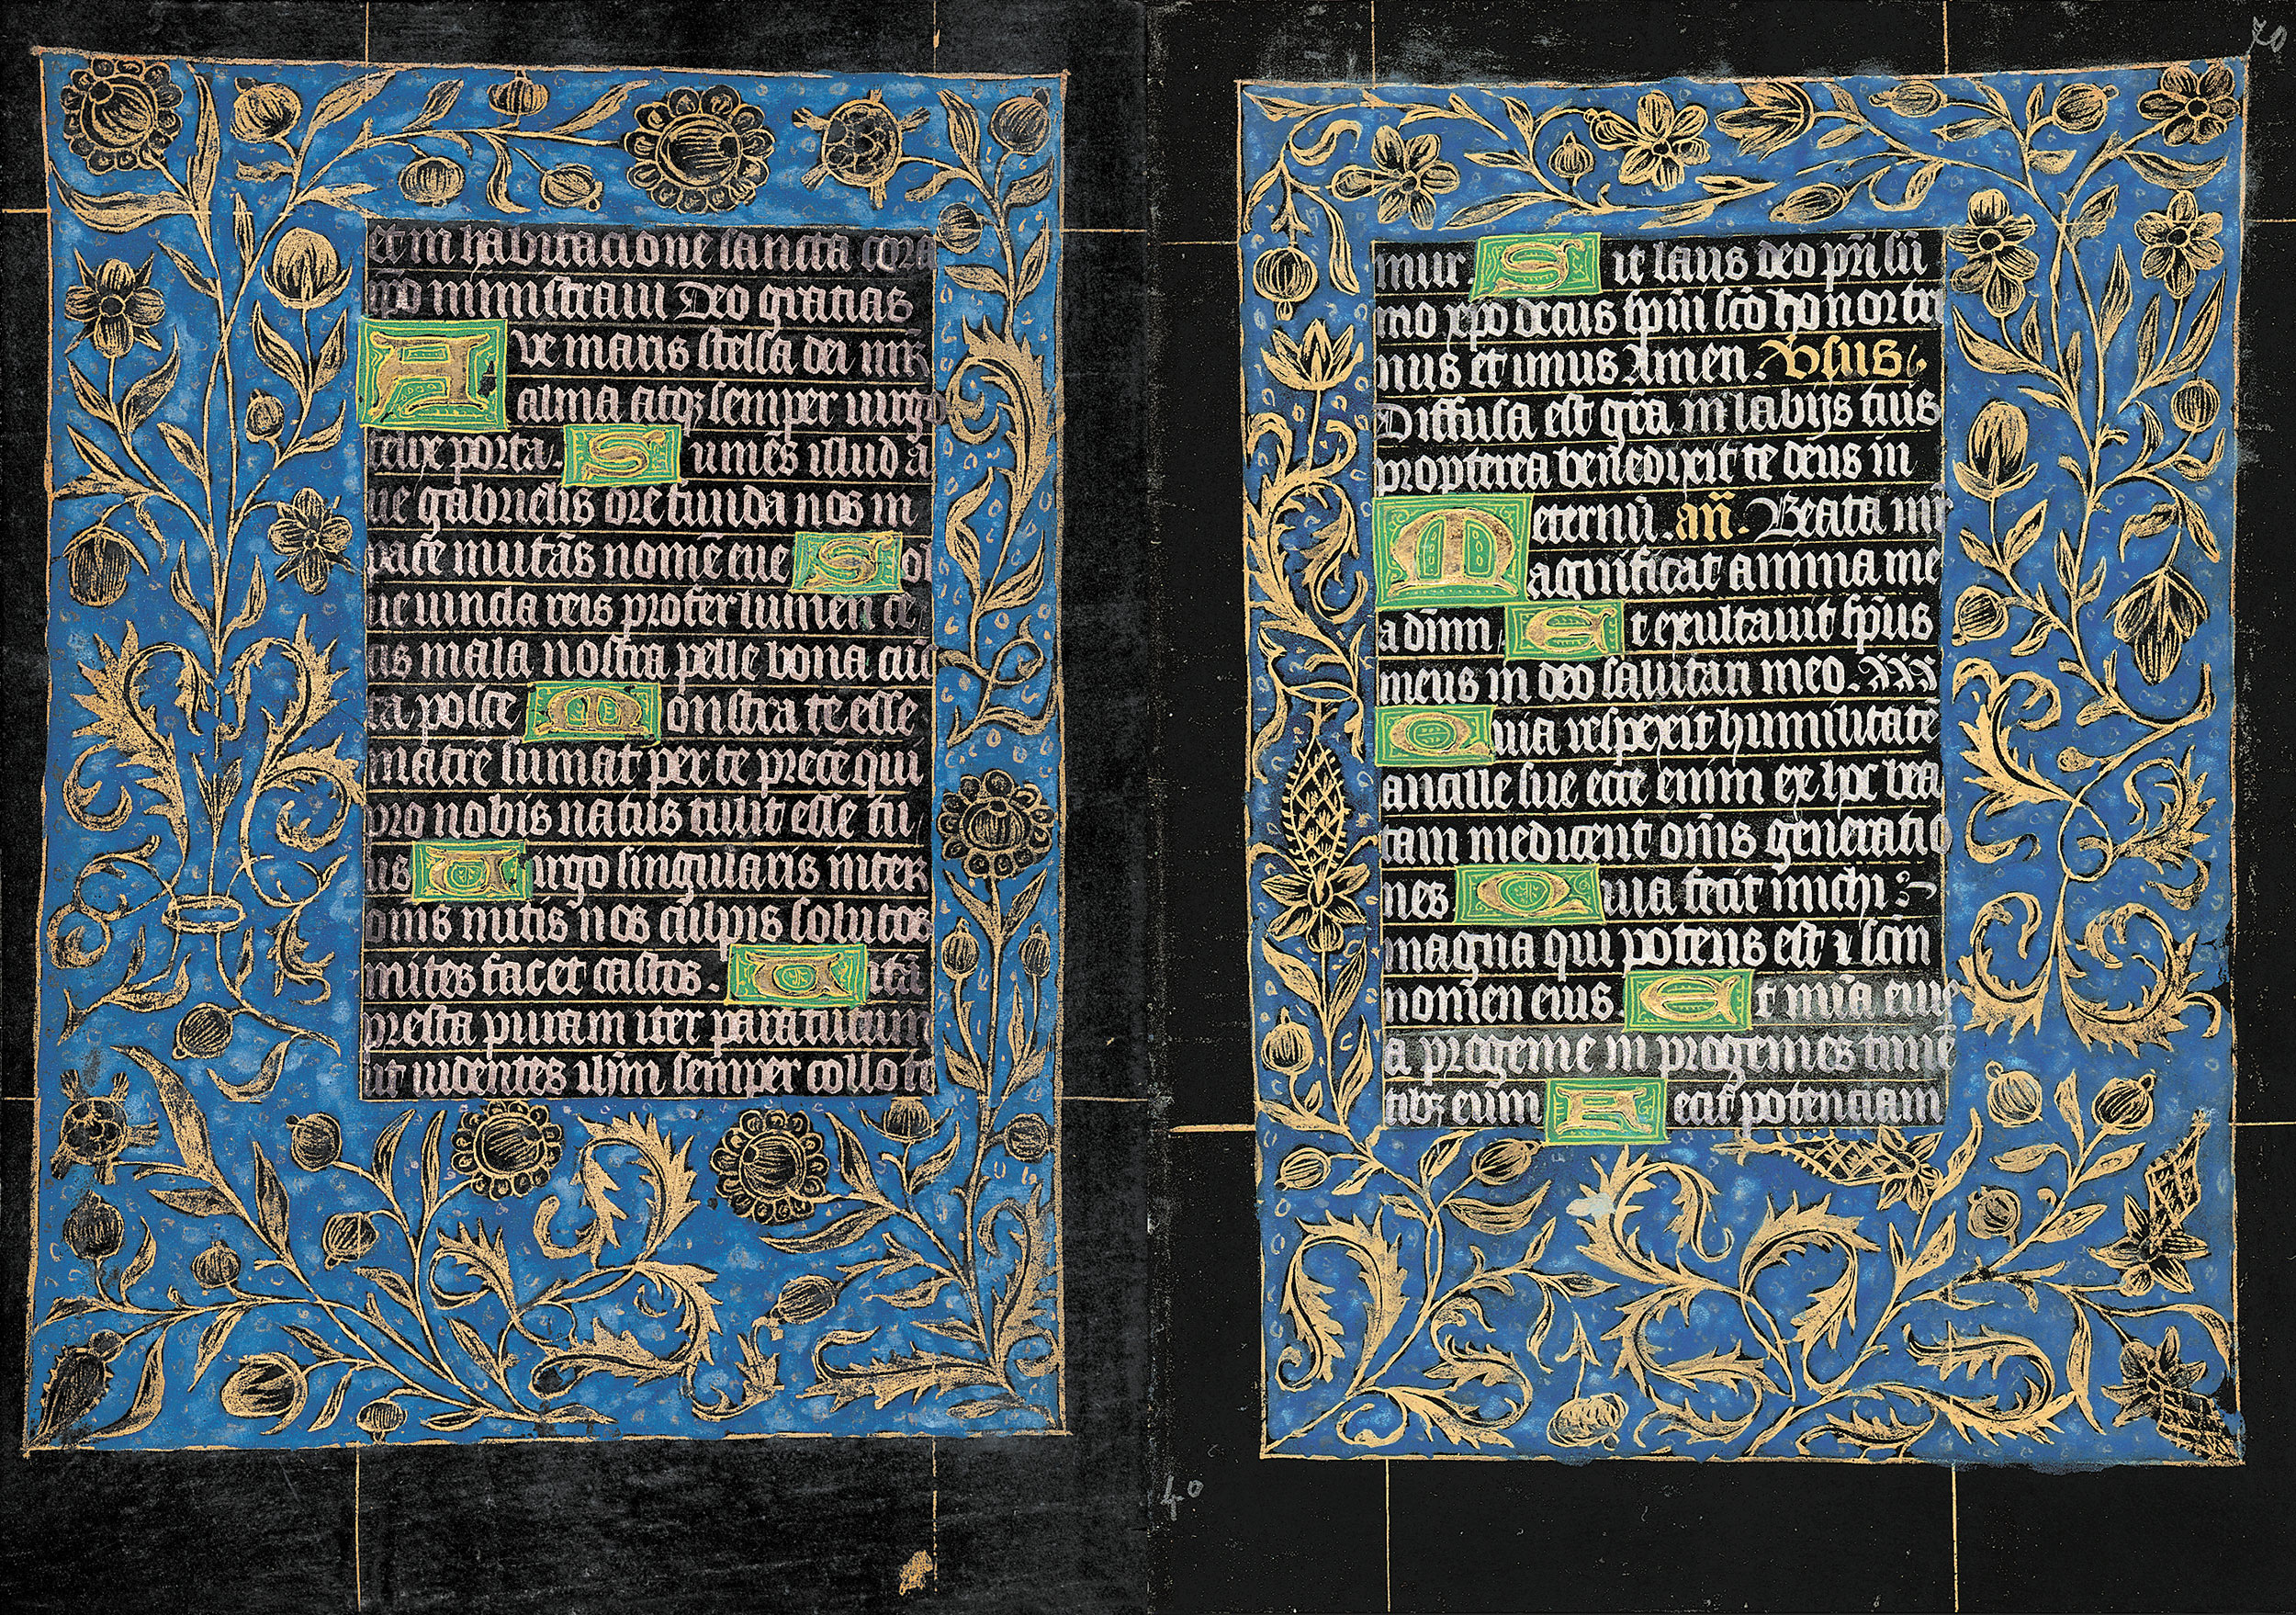 et in habitacione sancta corā
ip̄o ministraui Deo gratias
Aue maris stella dei mr̄
alma atqꝫ semper uirgo
felix porta. Sumēs illud a
ue gabrielis ore funda nos in
pace mutās nomē eue Sol
ue uincla reis profer lumen ce
cis mala nostra pelle bona cūc
ta posce Monstra te esse
matrē sumat per te precē qui
pro nobis natus tulit esse tu
us Uirgo singularis inter
om̄s mitis nos culpis solutos
mites fac et castos. Uitā
presta puram iter para tutum
ut uidentes ih̄m semper colle te
mur Sit laus deo pr̄i sū
mo xp̄o decus sp̄ui sc̄o honor tri
nus et unus Amen. Vsus
Diffusa est gr̄a in labijs tuis
propterea benedixit te deus in
eternū. an̄. Beata mr̄
Magnificat anima me
a dn̄m Et exultauit sp̄us
meus in deo salutari meo.
Quia respexit humilitatē
ancille sue ecce enim ex hoc bea
tam me dicent om̄s generatio
nes Quia fecit michi
magna qui potens est ⁊ sc̄m
nomen eius. Et mīa eius
a progenie in progenies timē
tibꝫ eum Fecit potenciam
70
40